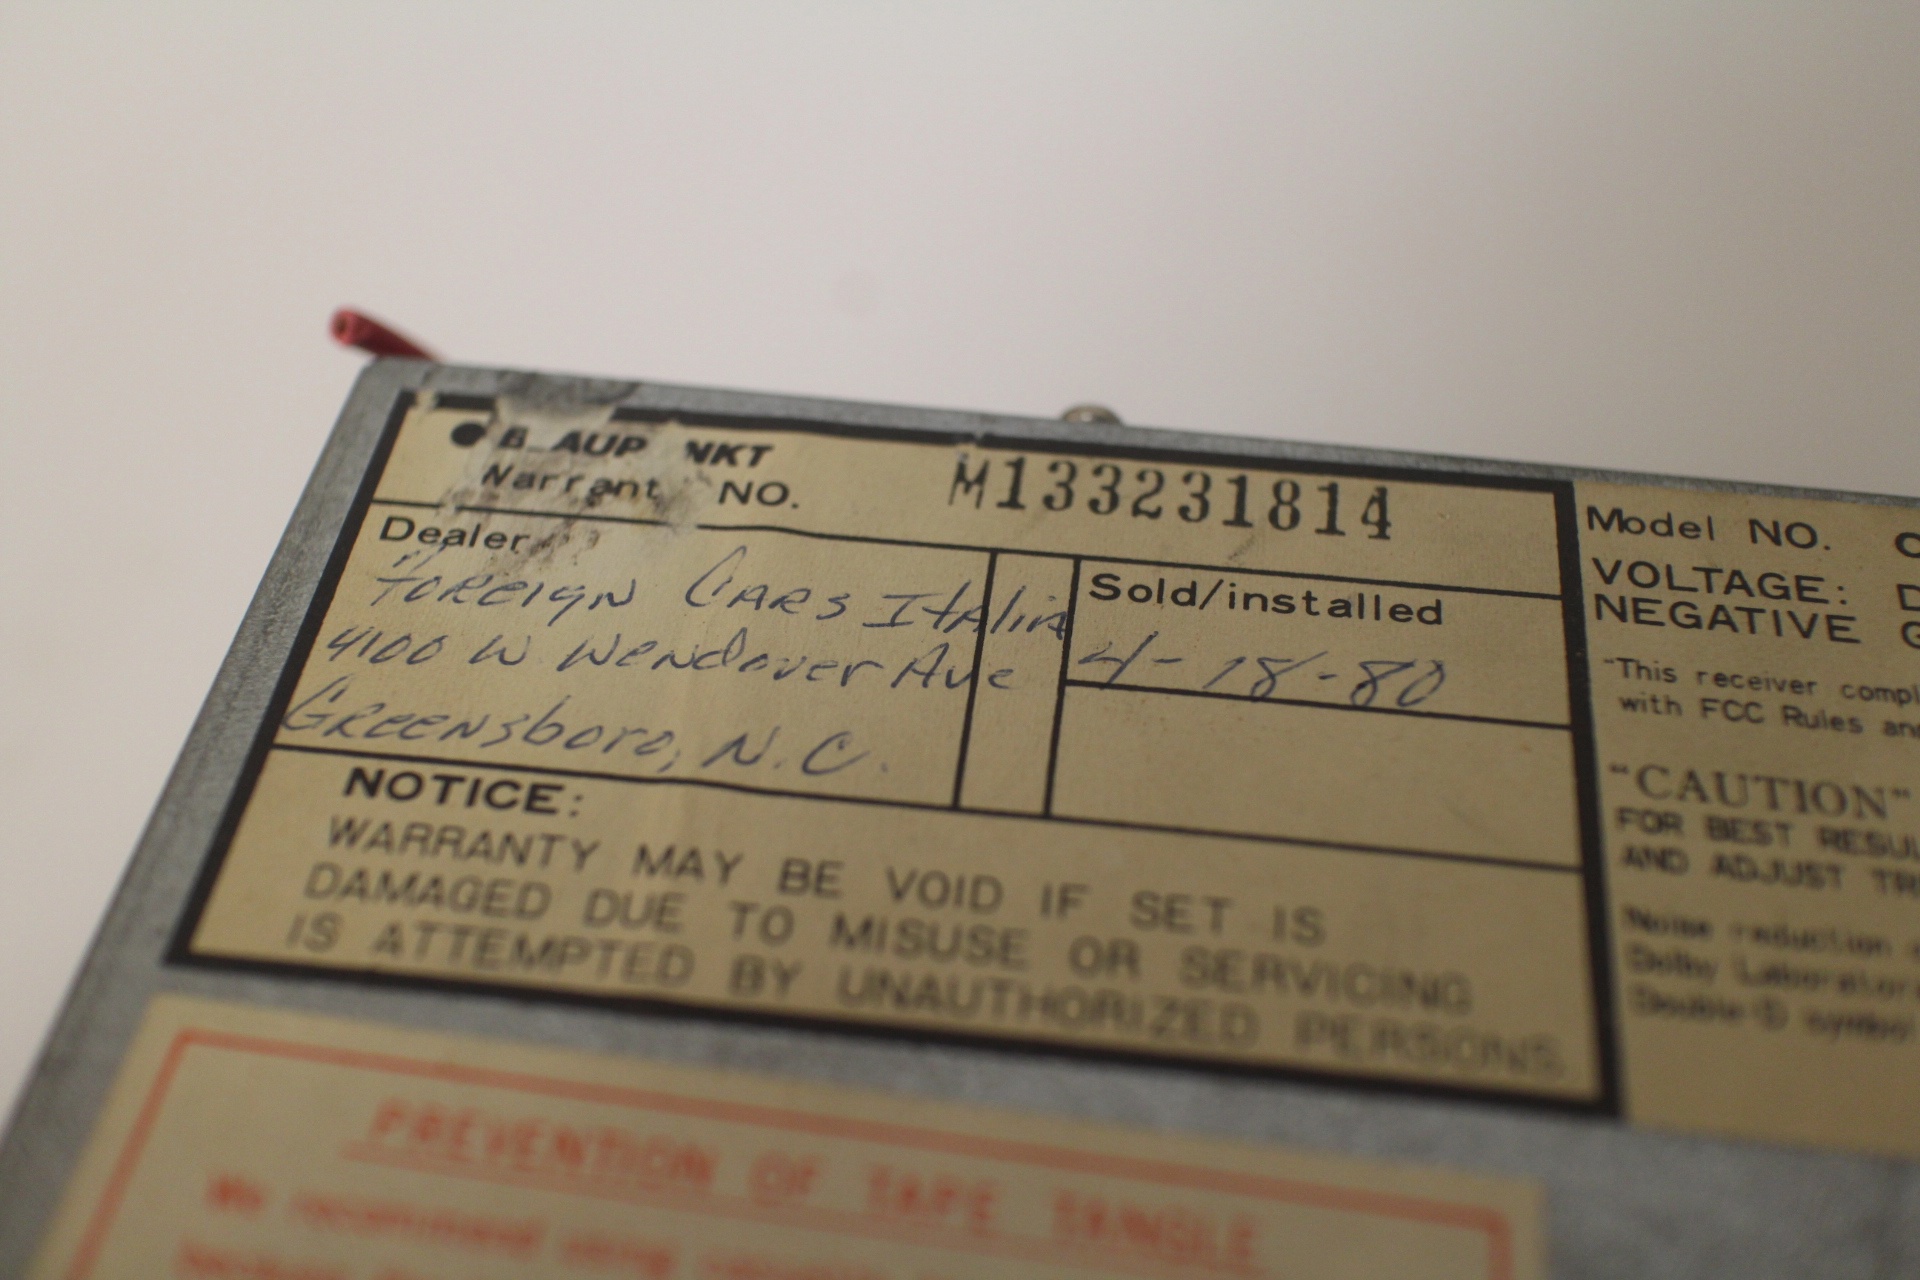 BLAUPUNKT
Warranty NO. M133231814
Dealer
Foreign Cars Italia
4100 W Wendover Ave
Greensboro, N.C.
Sold/installed
4-18-80
NOTICE:
WARRANTY MAY BE VOID IF SET IS
DAMAGED DUE TO MISUSE OR SERVICING
IS ATTEMPTED BY UNAUTHORIZED PERSONS
Model NO.
VOLTAGE:
NEGATIVE
"This receiver
with FCC Rules
"CAUTION"
FOR BEST
AND ADJUST
Noise reduction
Dolby
Double-D symbol
PREVENTION OF TAPE TANGLE
We recommend using